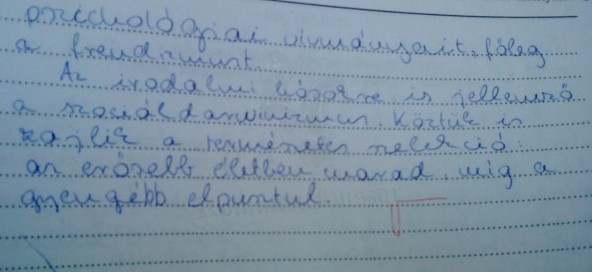 pszichológiai vívmányait, főleg
a freudizmust.
Az irodalmi hősökre is jellemző
a szociáldarwinizmus. Köztük is
zajlik a természetes szelekció:
az erősebb életben marad, míg a
gyengébb elpusztul.